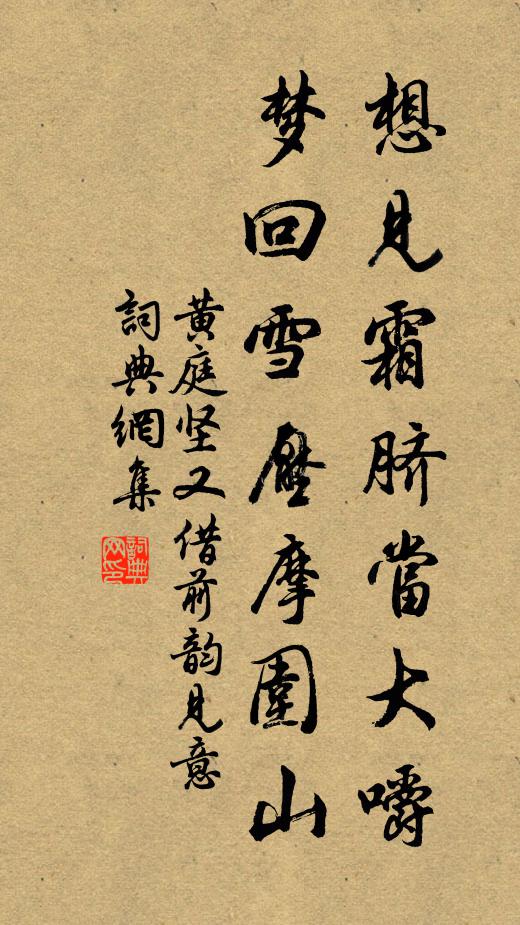 想见霜脐當大嚼
梦回雪壓摩圍山
黄庭坚又借前韵见意
詞典網集
詞典网印